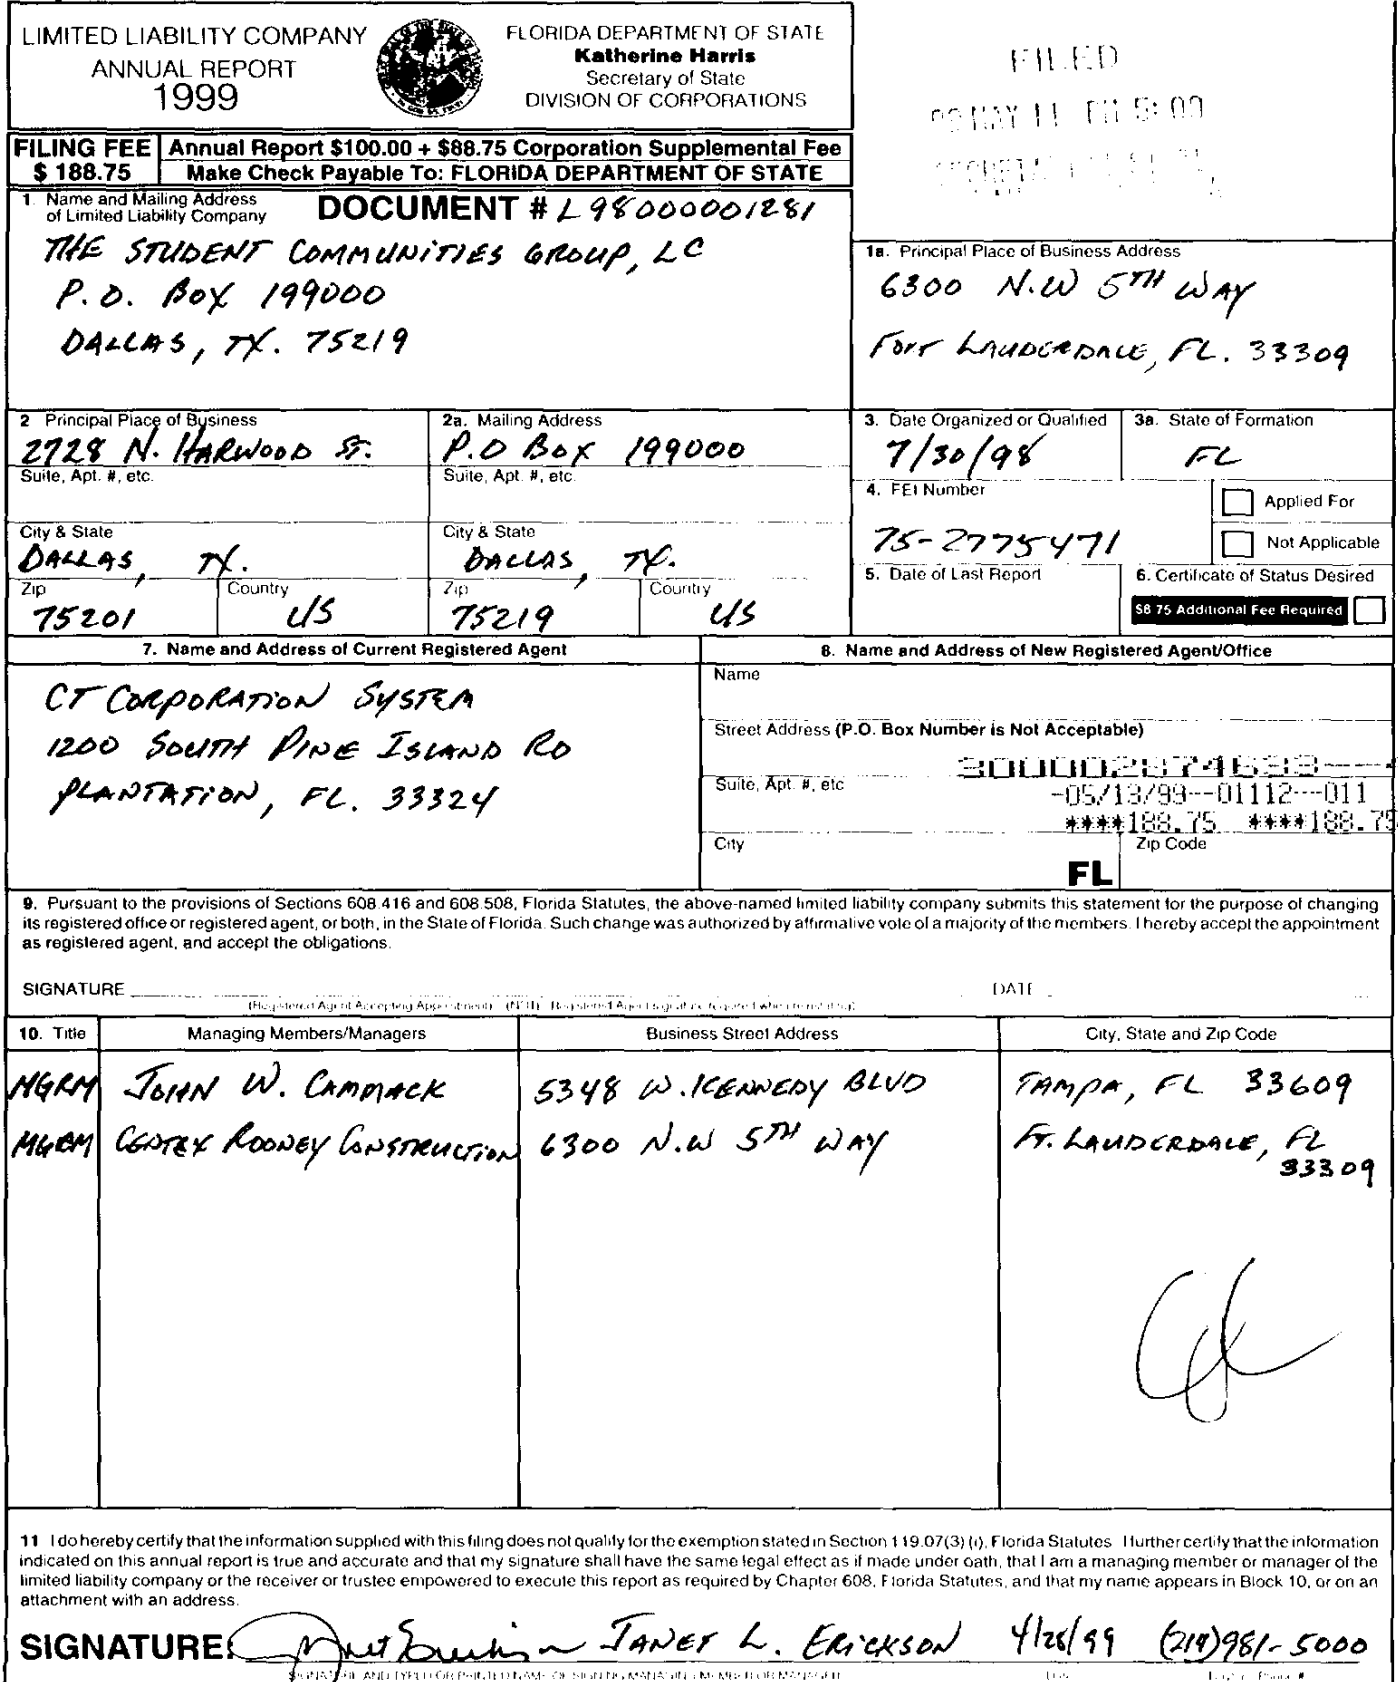 LIMITED LIABILITY COMPANY
ANNUAL REPORT
1999
FLORIDA DEPARTMENT OF STATE
Katherine Harris
Secretary of State
DIVISION OF CORPORATIONS
FILED
99 MAY 11 PM 5:00
FILING FEE
$ 188.75
Annual Report $100.00 + $88.75 Corporation Supplemental Fee
Make Check Payable To: FLORIDA DEPARTMENT OF STATE
1. Name and Mailing Address
of Limited Liability Company
DOCUMENT # L98000001281
THE STUDENT COMMUNITIES GROUP, LC
P.O. BOX 199000
DALLAS, TX. 75219
1a. Principal Place of Business Address
6300 N.W 5TH WAY
FORT LAUDERDALE, FL. 33309
2 Principal Place of Business
2728 N. HARWOOD ST.
Suite, Apt. #, etc.
City & State
DALLAS, TX.
Zip
75201
Country
US
2a. Mailing Address
P.O BOX 199000
Suite, Apt. #, etc.
City & State
DALLAS, TX.
Zip
75219
Country
US
3. Date Organized or Qualified
7/30/98
3a. State of Formation
FL
4. FEI Number
75-2775471
Applied For
Not Applicable
5. Date of Last Report
6. Certificate of Status Desired
$8.75 Additional Fee Required
7. Name and Address of Current Registered Agent
CT CORPORATION SYSTEM
1200 SOUTH PINE ISLAND RD
PLANTATION, FL. 33324
8. Name and Address of New Registered Agent/Office
Name
Street Address (P.O. Box Number is Not Acceptable)
300002874633---4
Suite, Apt. #, etc
-05/13/99--01112--011
****188.75 ****188.75
City
FL
Zip Code
9. Pursuant to the provisions of Sections 608.416 and 608.508, Florida Statutes, the above-named limited liability company submits this statement for the purpose of changing
its registered office or registered agent, or both, in the State of Florida. Such change was authorized by affirmative vote of a majority of the members. I hereby accept the appointment
as registered agent, and accept the obligations.
SIGNATURE
DATE
(Registered Agent Accepting Appointment) (NOTE: Registered Agent signature required when reinstating)
10. Title
Managing Members/Managers
Business Street Address
City, State and Zip Code
MGRM JOHN W. CAMMACK 5348 W. KENNEDY BLVD TAMPA, FL 33609
MGRM CENTEX ROONEY CONSTRUCTION 6300 N.W 5TH WAY FT. LAUDERDALE, FL
33309
11 I do hereby certify that the information supplied with this filing does not qualify for the exemption stated in Section 119.07(3) (i), Florida Statutes. I further certify that the information
indicated on this annual report is true and accurate and that my signature shall have the same legal effect as if made under oath, that I am a managing member or manager of the
limited liability company or the receiver or trustee empowered to execute this report as required by Chapter 608, Florida Statutes, and that my name appears in Block 10, or on an
attachment with an address.
SIGNATURE: JANET L. ERICKSON 4/28/99 (214)981-5000
SIGNATURE AND TYPED OR PRINTED NAME OF SIGNING MANAGING MEMBER OR MANAGER